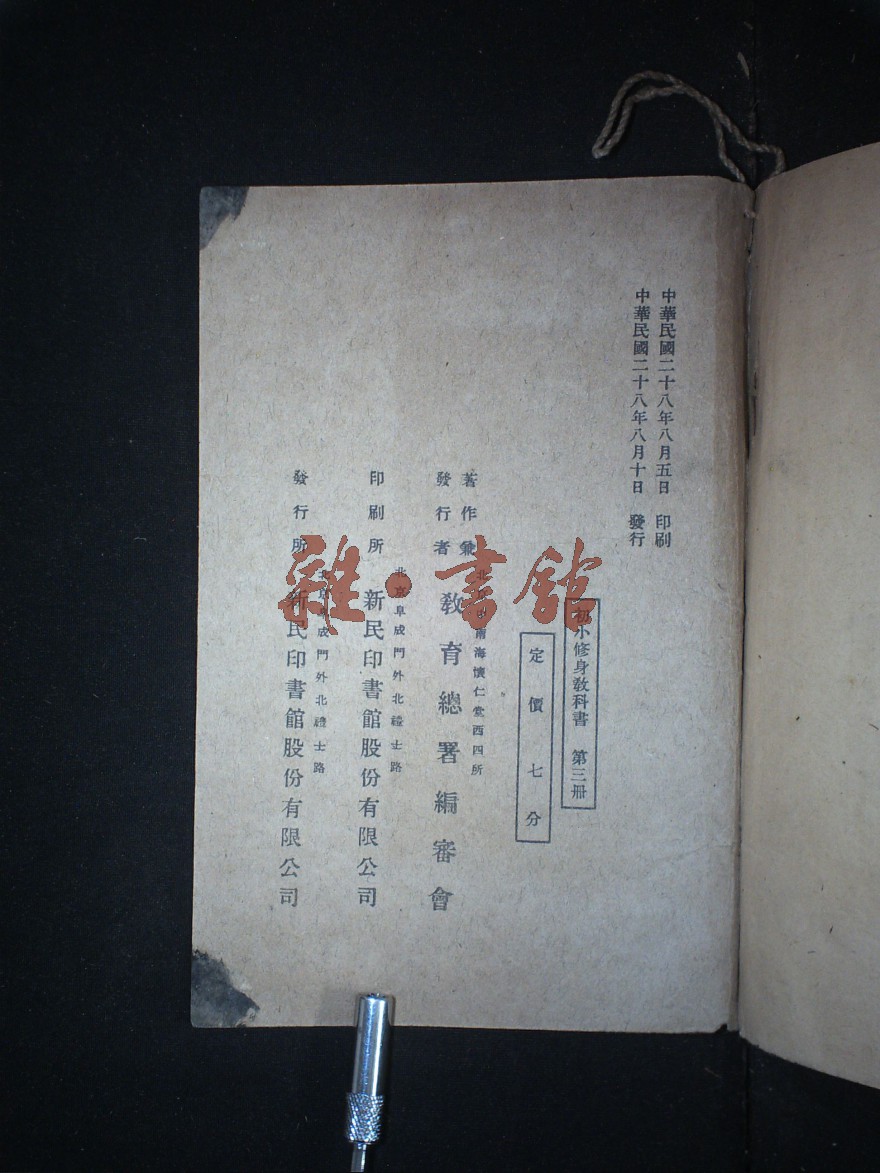 中華民國二十八年八月五日 印刷
中華民國二十八年八月十日 發行
初小修身教科書 第三冊
定價七分
著作兼
發行者
北京中南海懷仁堂西四所
教育總署編審會
印刷所
北京阜成門外北禮士路
新民印書館股份有限公司
發行所
北京阜成門外北禮士路
新民印書館股份有限公司
雜·書館